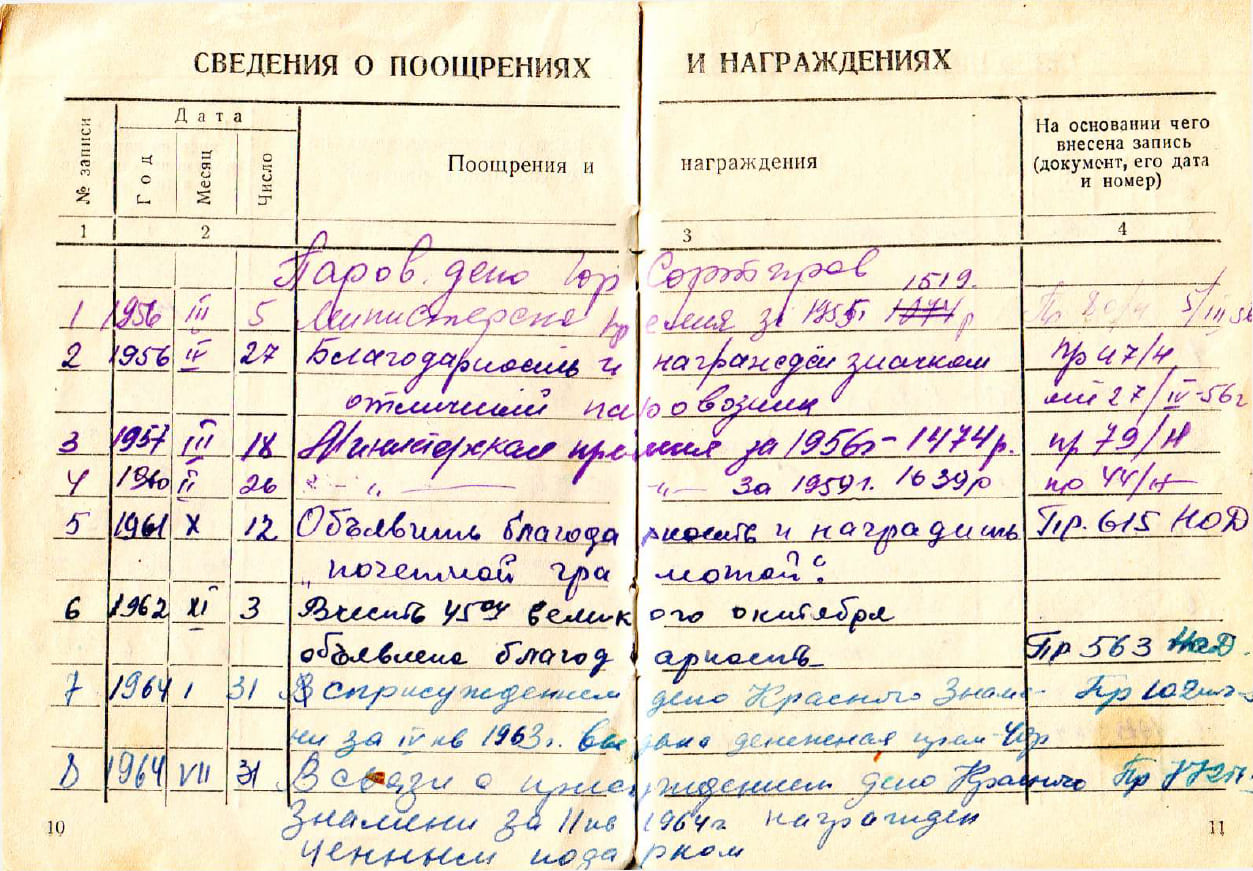 СВЕДЕНИЯ О ПООЩРЕНИЯХ И НАГРАЖДЕНИЯХ
№ записи
Дата
Год
Месяц
Число
Поощрения и награждения
На основании чего
внесена запись
(документ, его дата
и номер)
1 2 3 4
Паров. депо Гор Сортиров
1519.
1 1956 III 5 Министерска премия за 1955г 1474 р 5/III 56
2 1956 IV 27 Благодарность и награжден значком пр 47/Н
отличный паровозник 27/IV-56г
3 1957 III 18 Министерская премия за 1956г - 1474р. пр 79/Н
4 1960 II 26 -"- -"- за 1959г. 1639р пр 44/Н
5 1961 X 12 Объявить благодарность и наградить Пр. 615 НОД
"почетной грамотой".
6 1962 XI 3 В честь 45ой великого октября
объявлена благодарность Пр 563 НОД.
7 1964 I 31 В с присуждением депо Красного Знаме- Пр 102
ни за IV кв 1963г. выдана денежная прем-
8 1964 VII 31 В связи с присуждением депо Красного Пр
Знамени за II кв 1964г награжден
ценным подарком
10
11